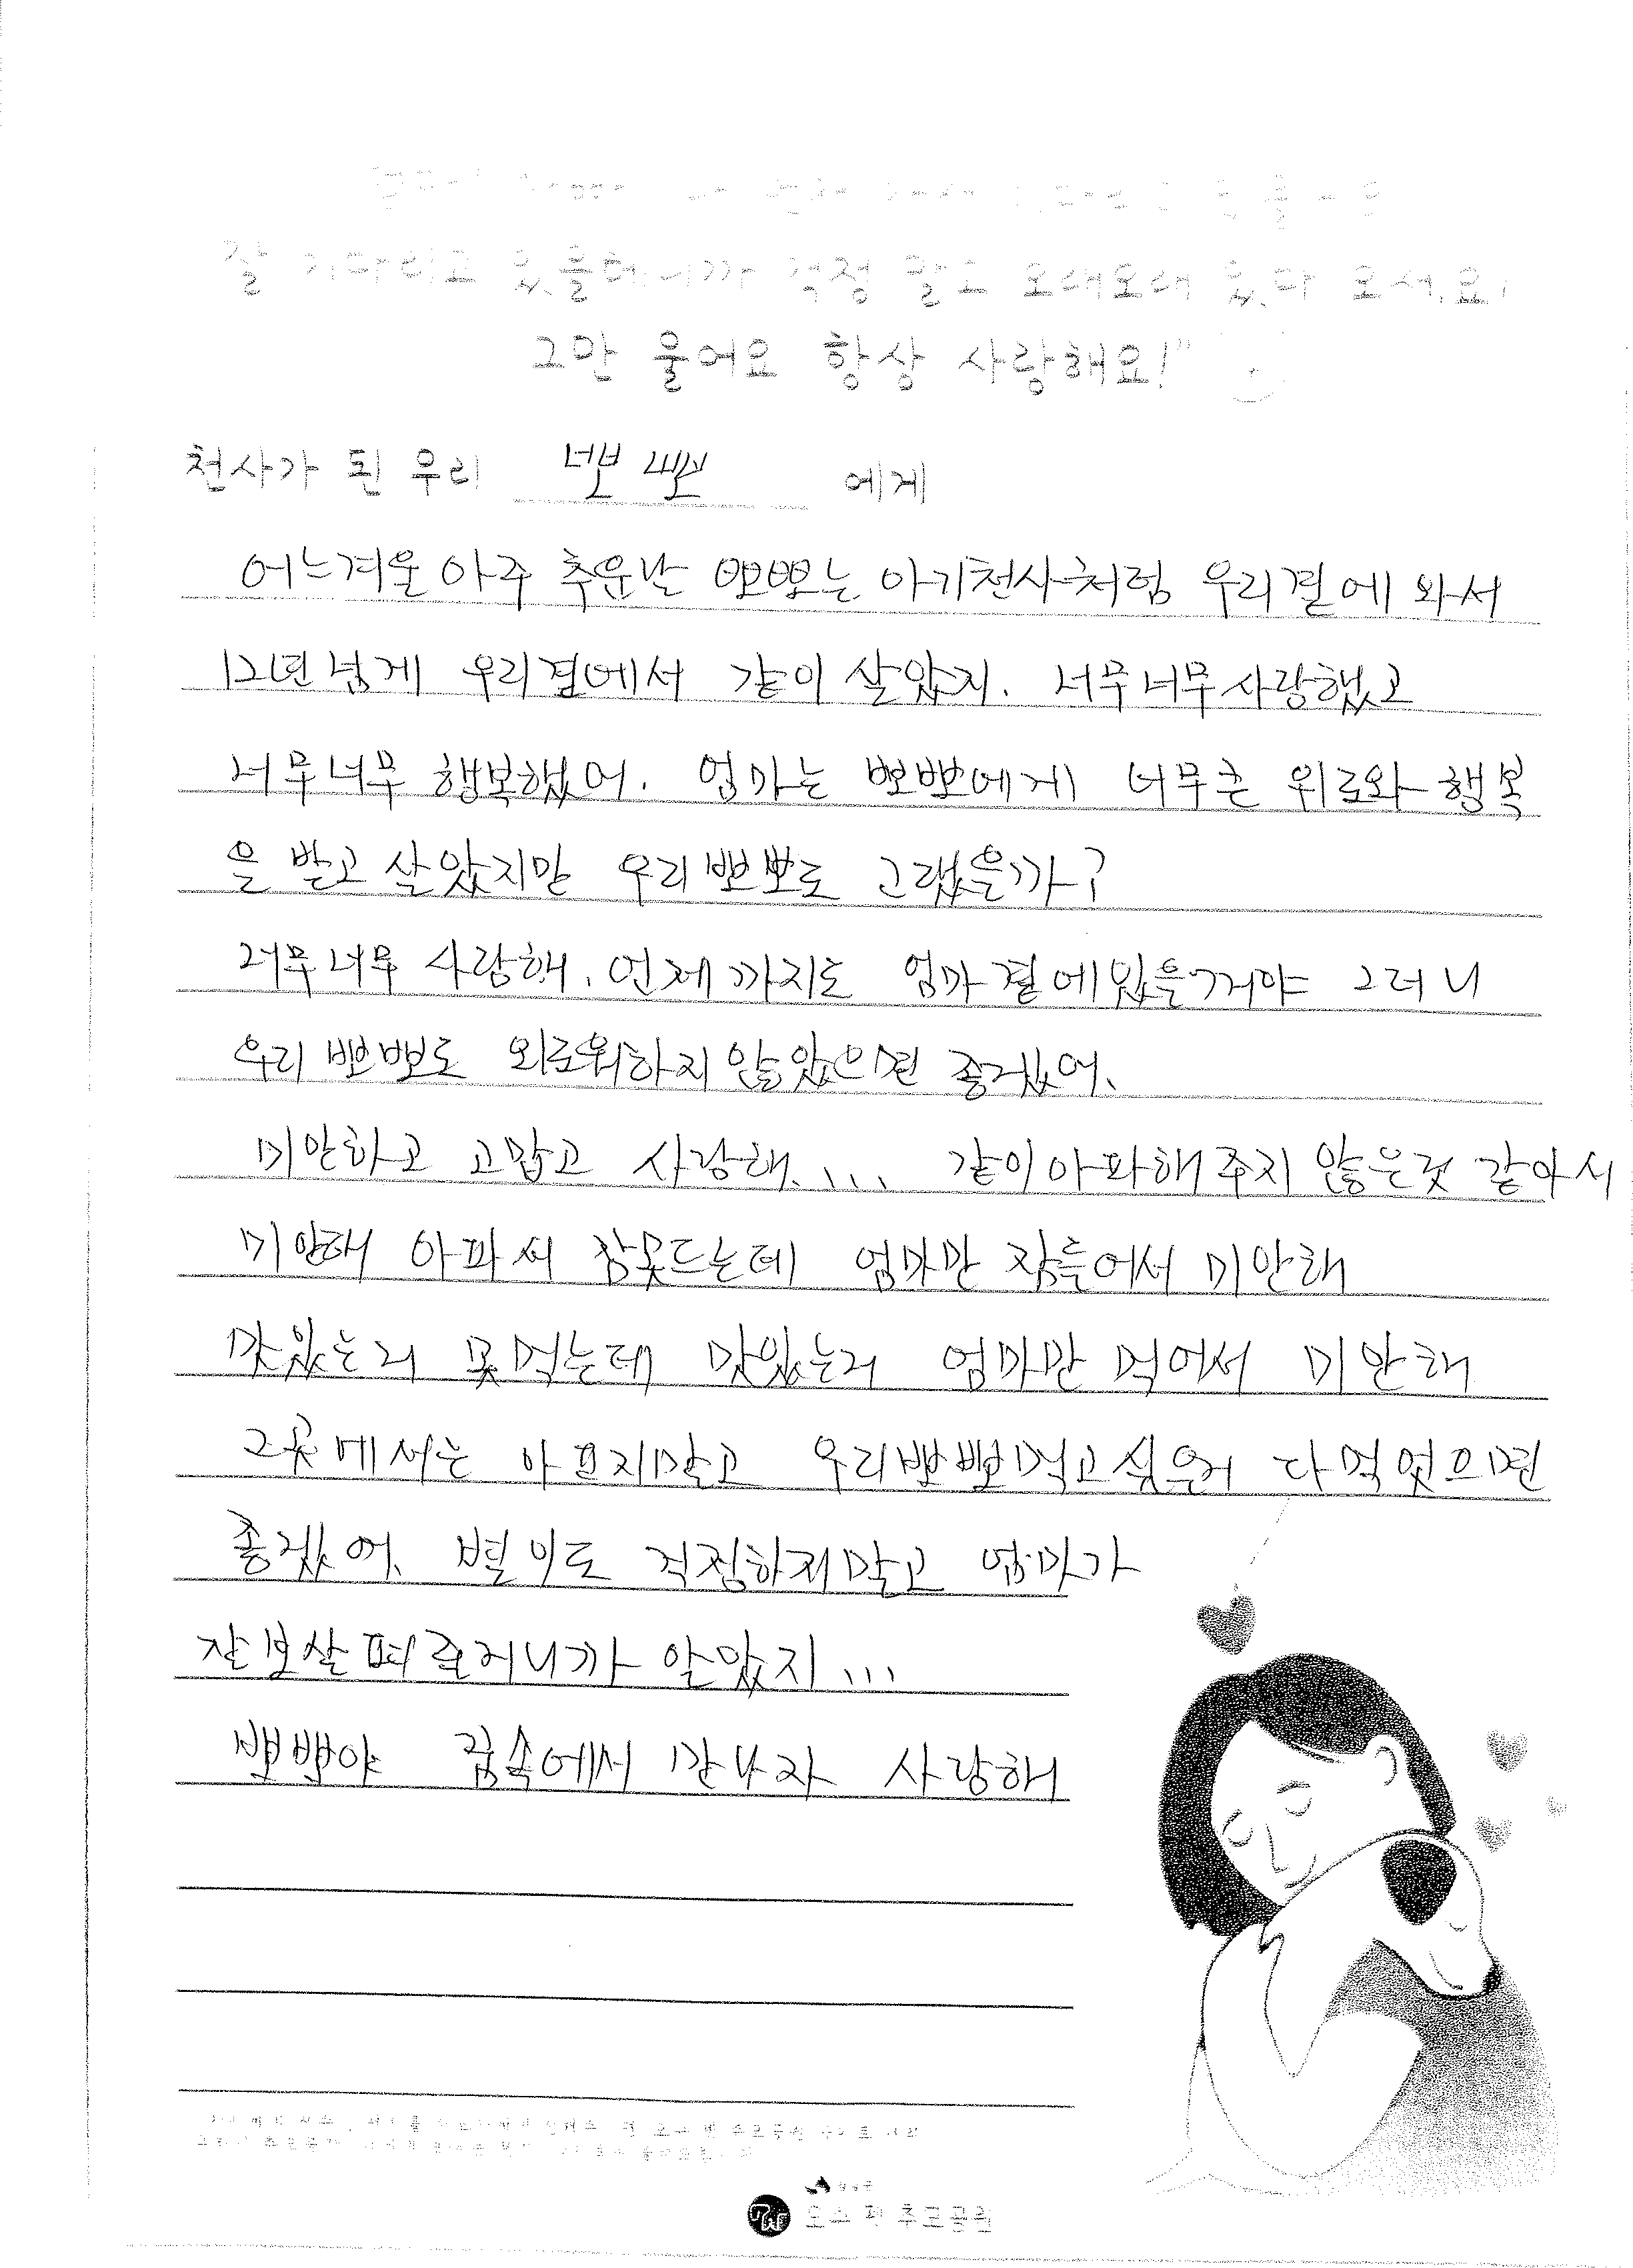 잘 기다리고 있을테니까 걱정 말고 오래오래 있다 오세요!
그만 울어요 항상 사랑해요!"
천사가 된 우리 뽀뽀 에게
어느겨울 아주 추운날 뽀뽀는 아기천사처럼 우리곁에 와서
12년넘게 우리곁에서 같이 살았지. 너무너무사랑했고
너무너무 행복했어. 엄마는 뽀뽀에게 너무큰 위로와 행복
을 받고 살았지만 우리뽀뽀도 그랬을까?
너무너무 사랑해. 언제까지도 엄마 곁에있을꺼야 그러니
우리 뽀뽀도 외로워하지 않았으면 좋겠어.
미안하고 고맙고 사랑해.... 같이아파해주지 않은것 같아서
미안해 아파서 잠못드는데 엄마만 잠들어서 미안해
맛있는거 못먹는데 맛있는거 엄마만 먹어서 미안해
그곳에서는 아프지말고 우리뽀뽀먹고싶은거 다먹었으면
좋겠어. 별이도 걱정하지말고 엄마가
잘보살펴줄거니까 알았지...
뽀뽀야 꿈속에서 만나자 사랑해
펫 추모공원